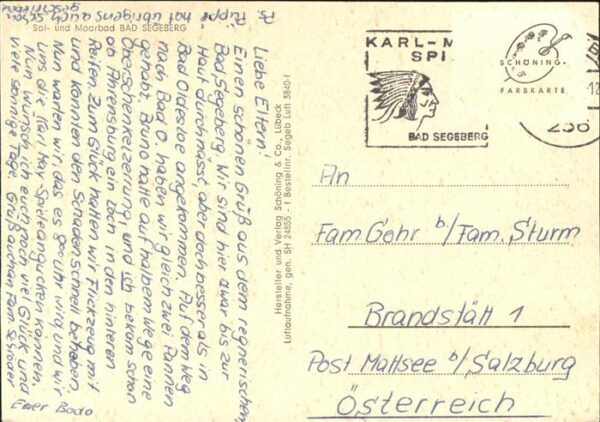 Ps. Püppi hat übrigens auch schon
geschrieben
Sol- und Moorbad BAD SEGEBERG
Liebe Eltern!
Einen schönen Gruß aus dem regnerischen
Bad Segeberg. Wir sind hier zwar bis zur
Haut durchnässt, aber doch besser als in
Bad Oldesloe angekommen. Auf dem Weg
nach Bad O. haben wir gleich zwei Pannen
gehabt. Bruno hatte auf halbem Wege eine
Oberschenkelzerrung, und ich bekam schon
ab Ahrensburg ein Loch in den hinteren
Reifen. Zum Glück hatten wir Flickzeug mit
und konnten den Schaden schnell beheben.
Nun warten wir, das es 20 Uhr wird und wir
uns die Karl May-Spiele angucken können.
Nun wünsch ich euch noch viel Glück und
viele sonnige Tage. Grüß auch an Fam. Ströder
Euer Bodo.
Hersteller und Verlag Schöning & Co., Lübeck
Luftaufnahme, gen. SH 24855 - 1 Bestellnr. Segeb Luft 3840-f
KARL-M
SPI
BAD SEGEBERG
SCHÖNING
FARBKARTE
236
An
Fam. Gohr b/Fam. Sturm
Brandstätt 1
Post Mattsee b/Salzburg
Österreich